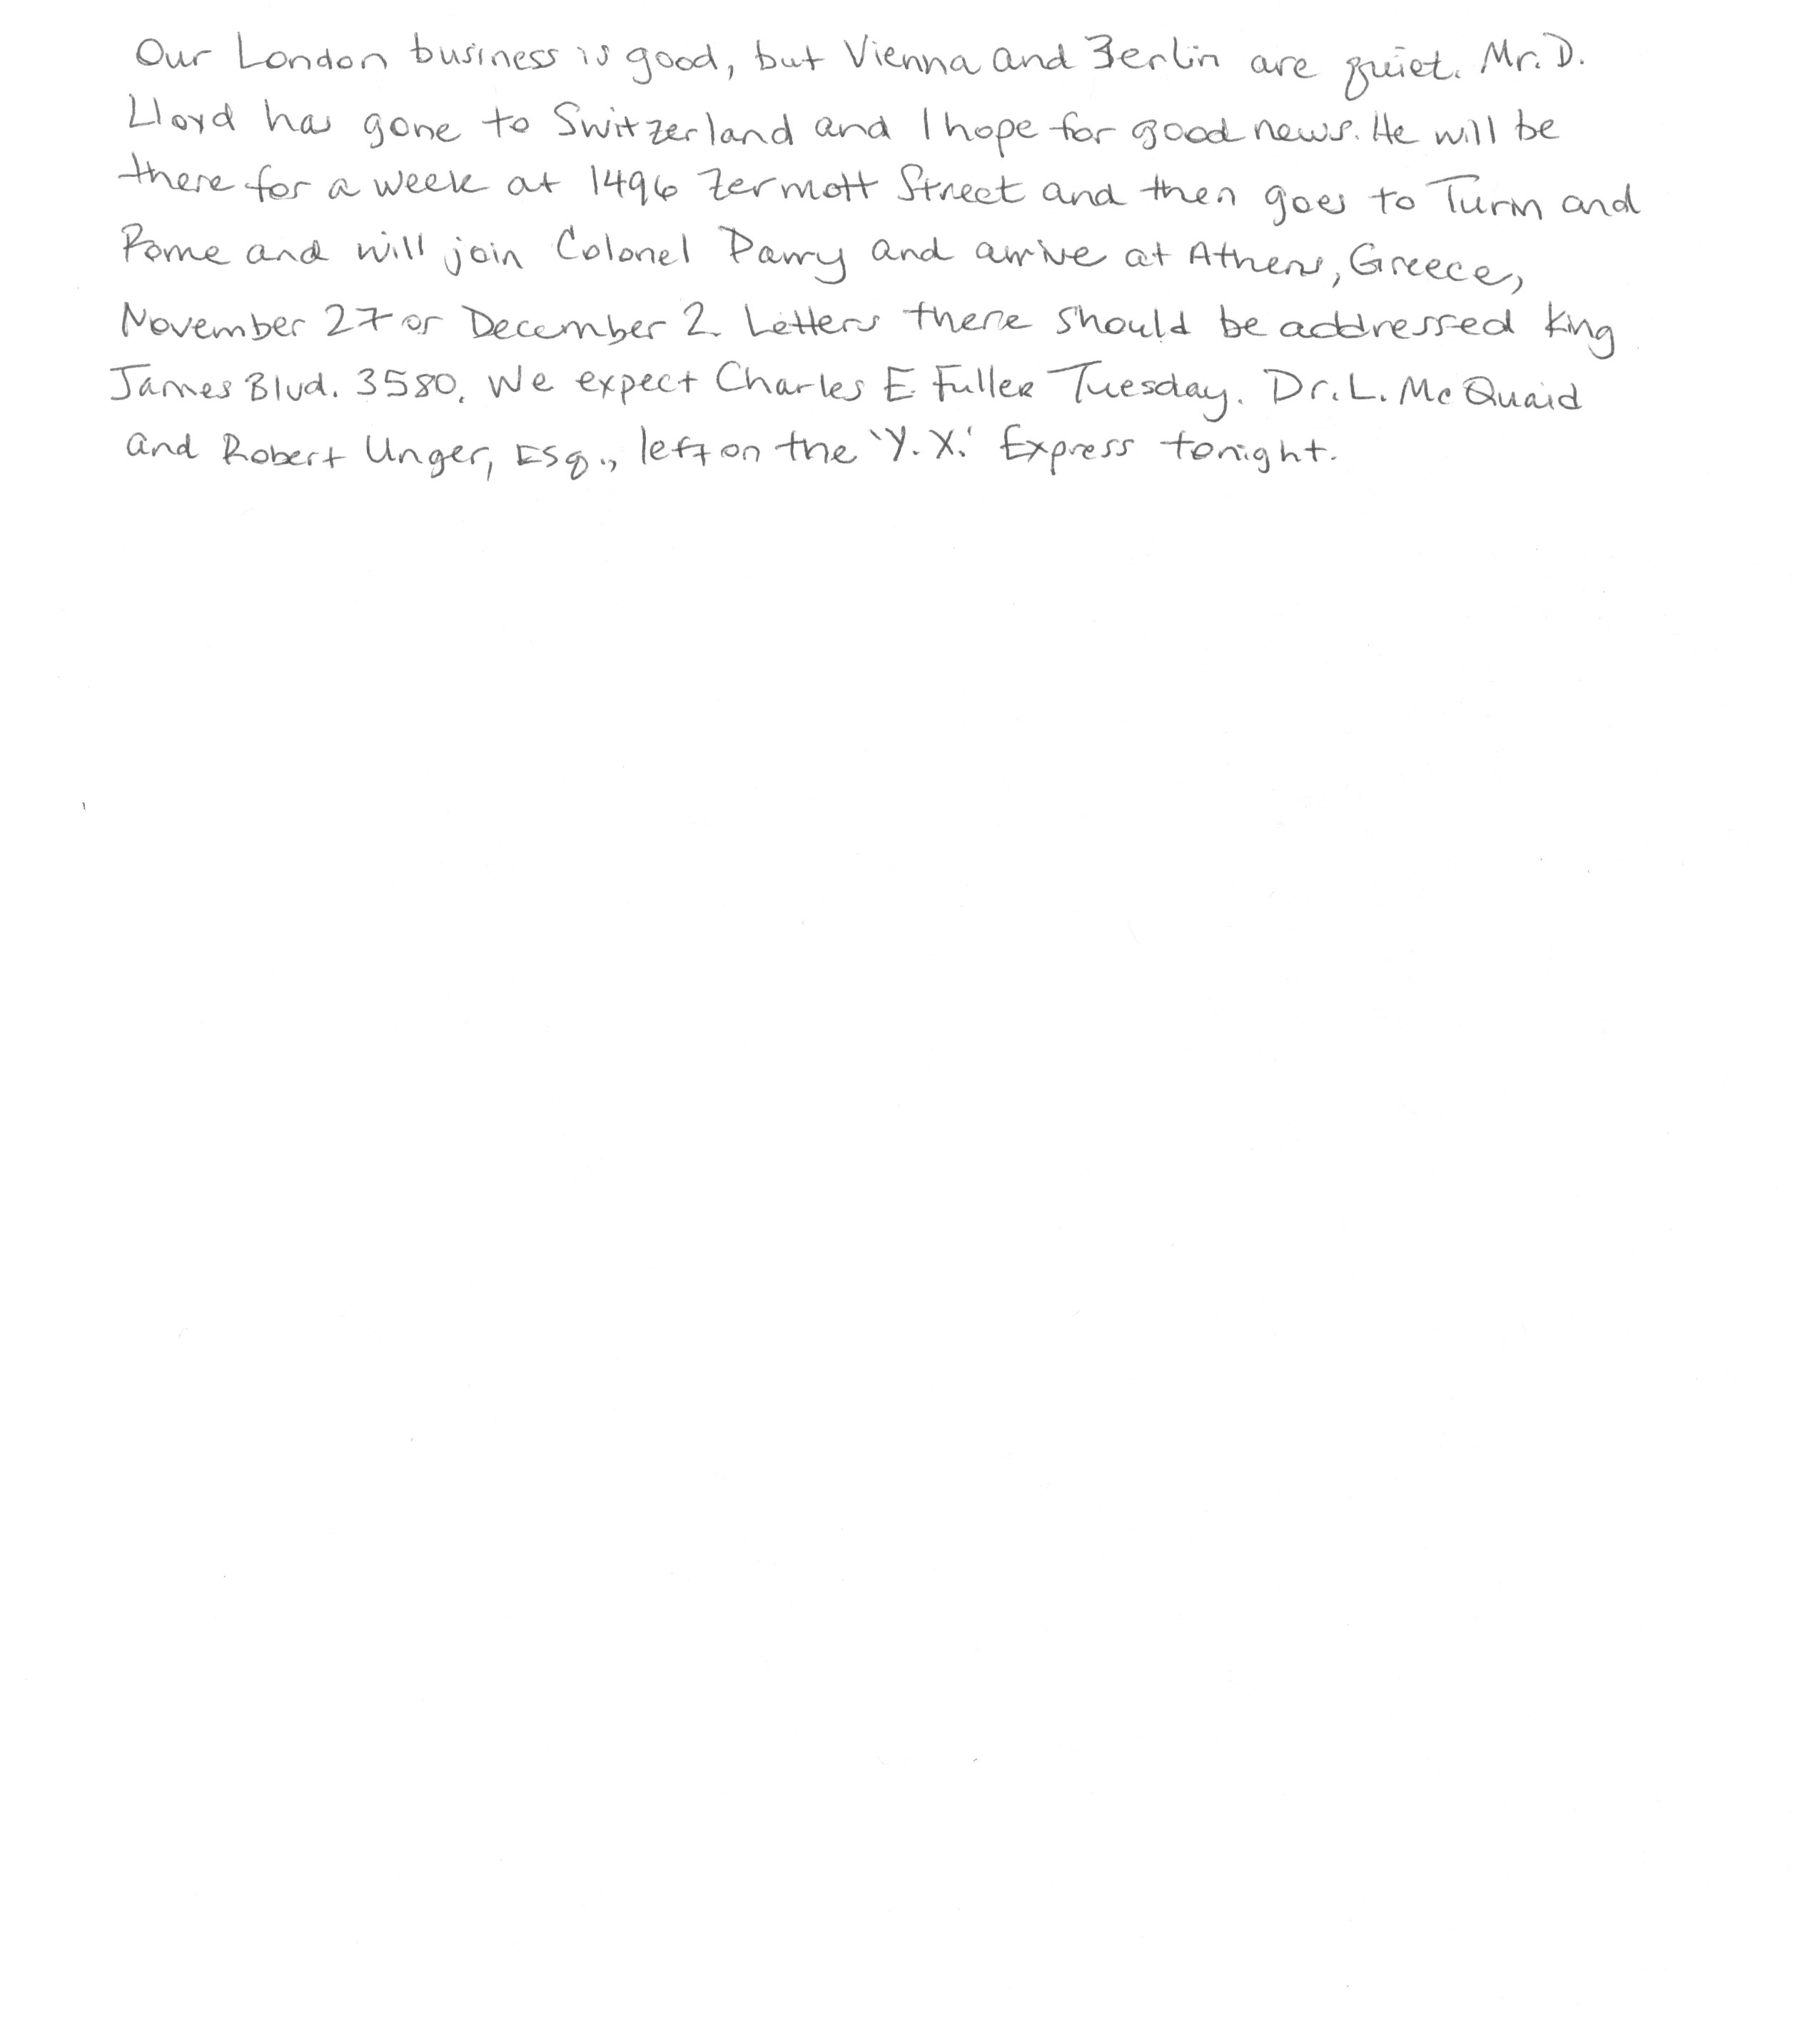 Our London business is good, but Vienna and Berlin are quiet. Mr. D.
Lloyd has gone to Switzerland and I hope for good news. He will be
there for a week at 1496 Zermott Street and then goes to Turin and
Rome and will join Colonel Parry and arrive at Athens, Greece,
November 27 or December 2. Letters there should be addressed King
James Blvd. 3580. We expect Charles E. Fuller Tuesday. Dr. L. McQuaid
and Robert Unger, Esq., left on the 'Y.X.' Express tonight.